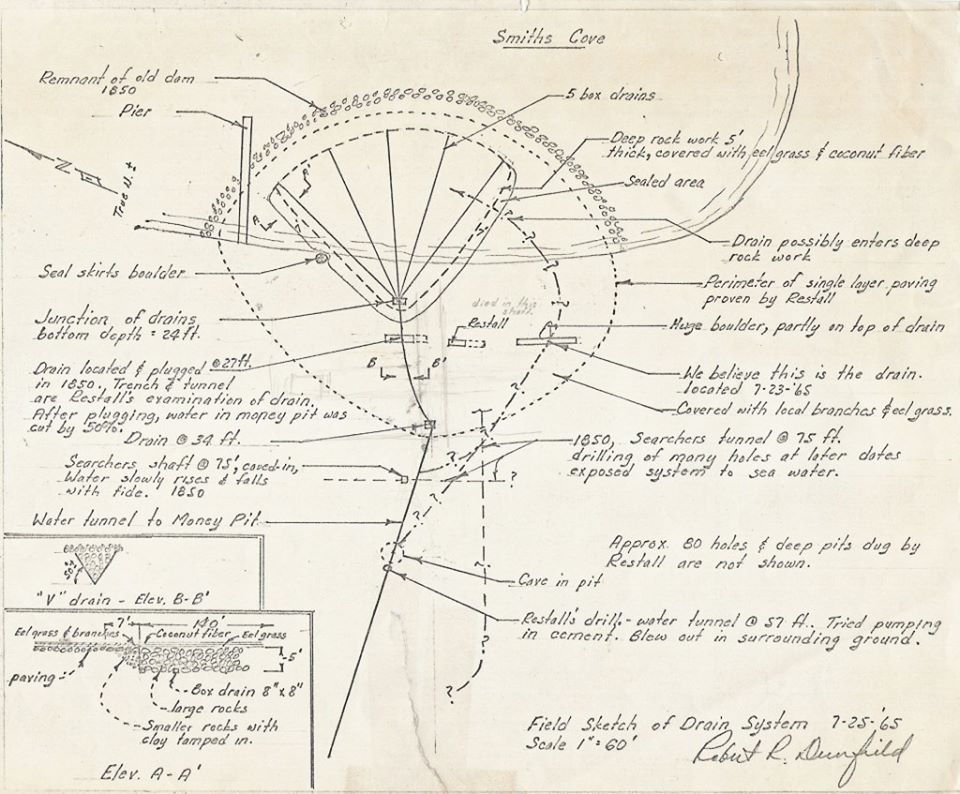 Smiths Cove
Remnant of old dam
1850
Pier
5 box drains
Deep rock work 5'
thick, covered with eel grass & coconut fiber
Sealed area
N
True N. ±
A
A'
Drain possibly enters deep
rock work
Seal skirts boulder
Perimeter of single layer paving
proven by Restall
died in this
shaft.
Junction of drains
bottom depth = 24 ft.
Restall
Huge boulder, partly on top of drain
Drain located & plugged @ 27 ft.
in 1850. Trench & tunnel
are Restall's examination of drain.
After plugging, water in money pit was
cut by 50%.
B B'
We believe this is the drain.
located 7-23-'65
Covered with local branches & eel grass.
Drain @ 34 ft.
1850, Searchers tunnel @ 75 ft.
drilling of many holes at later dates
exposed system to sea water.
Searchers shaft @ 75', caved in,
Water slowly rises & falls
with tide. 1850
?
Water tunnel to Money Pit
Approx. 80 holes & deep pits dug by
Restall are not shown.
Cave in pit
"V" drain - Elev. B-B'
Restall's drill - water tunnel @ 57 ft.. Tried pumping
in cement. Blew out in surrounding ground.
7' 140'
Eel grass & branches Coconut fiber Eel grass
5'
paving
Box drain 8" x 8"
large rocks
Smaller rocks with
clay tamped in.
Elev. A-A'
?
Field Sketch of Drain System 7-25-'65
Scale 1" = 60'
Robert R. Dunfield